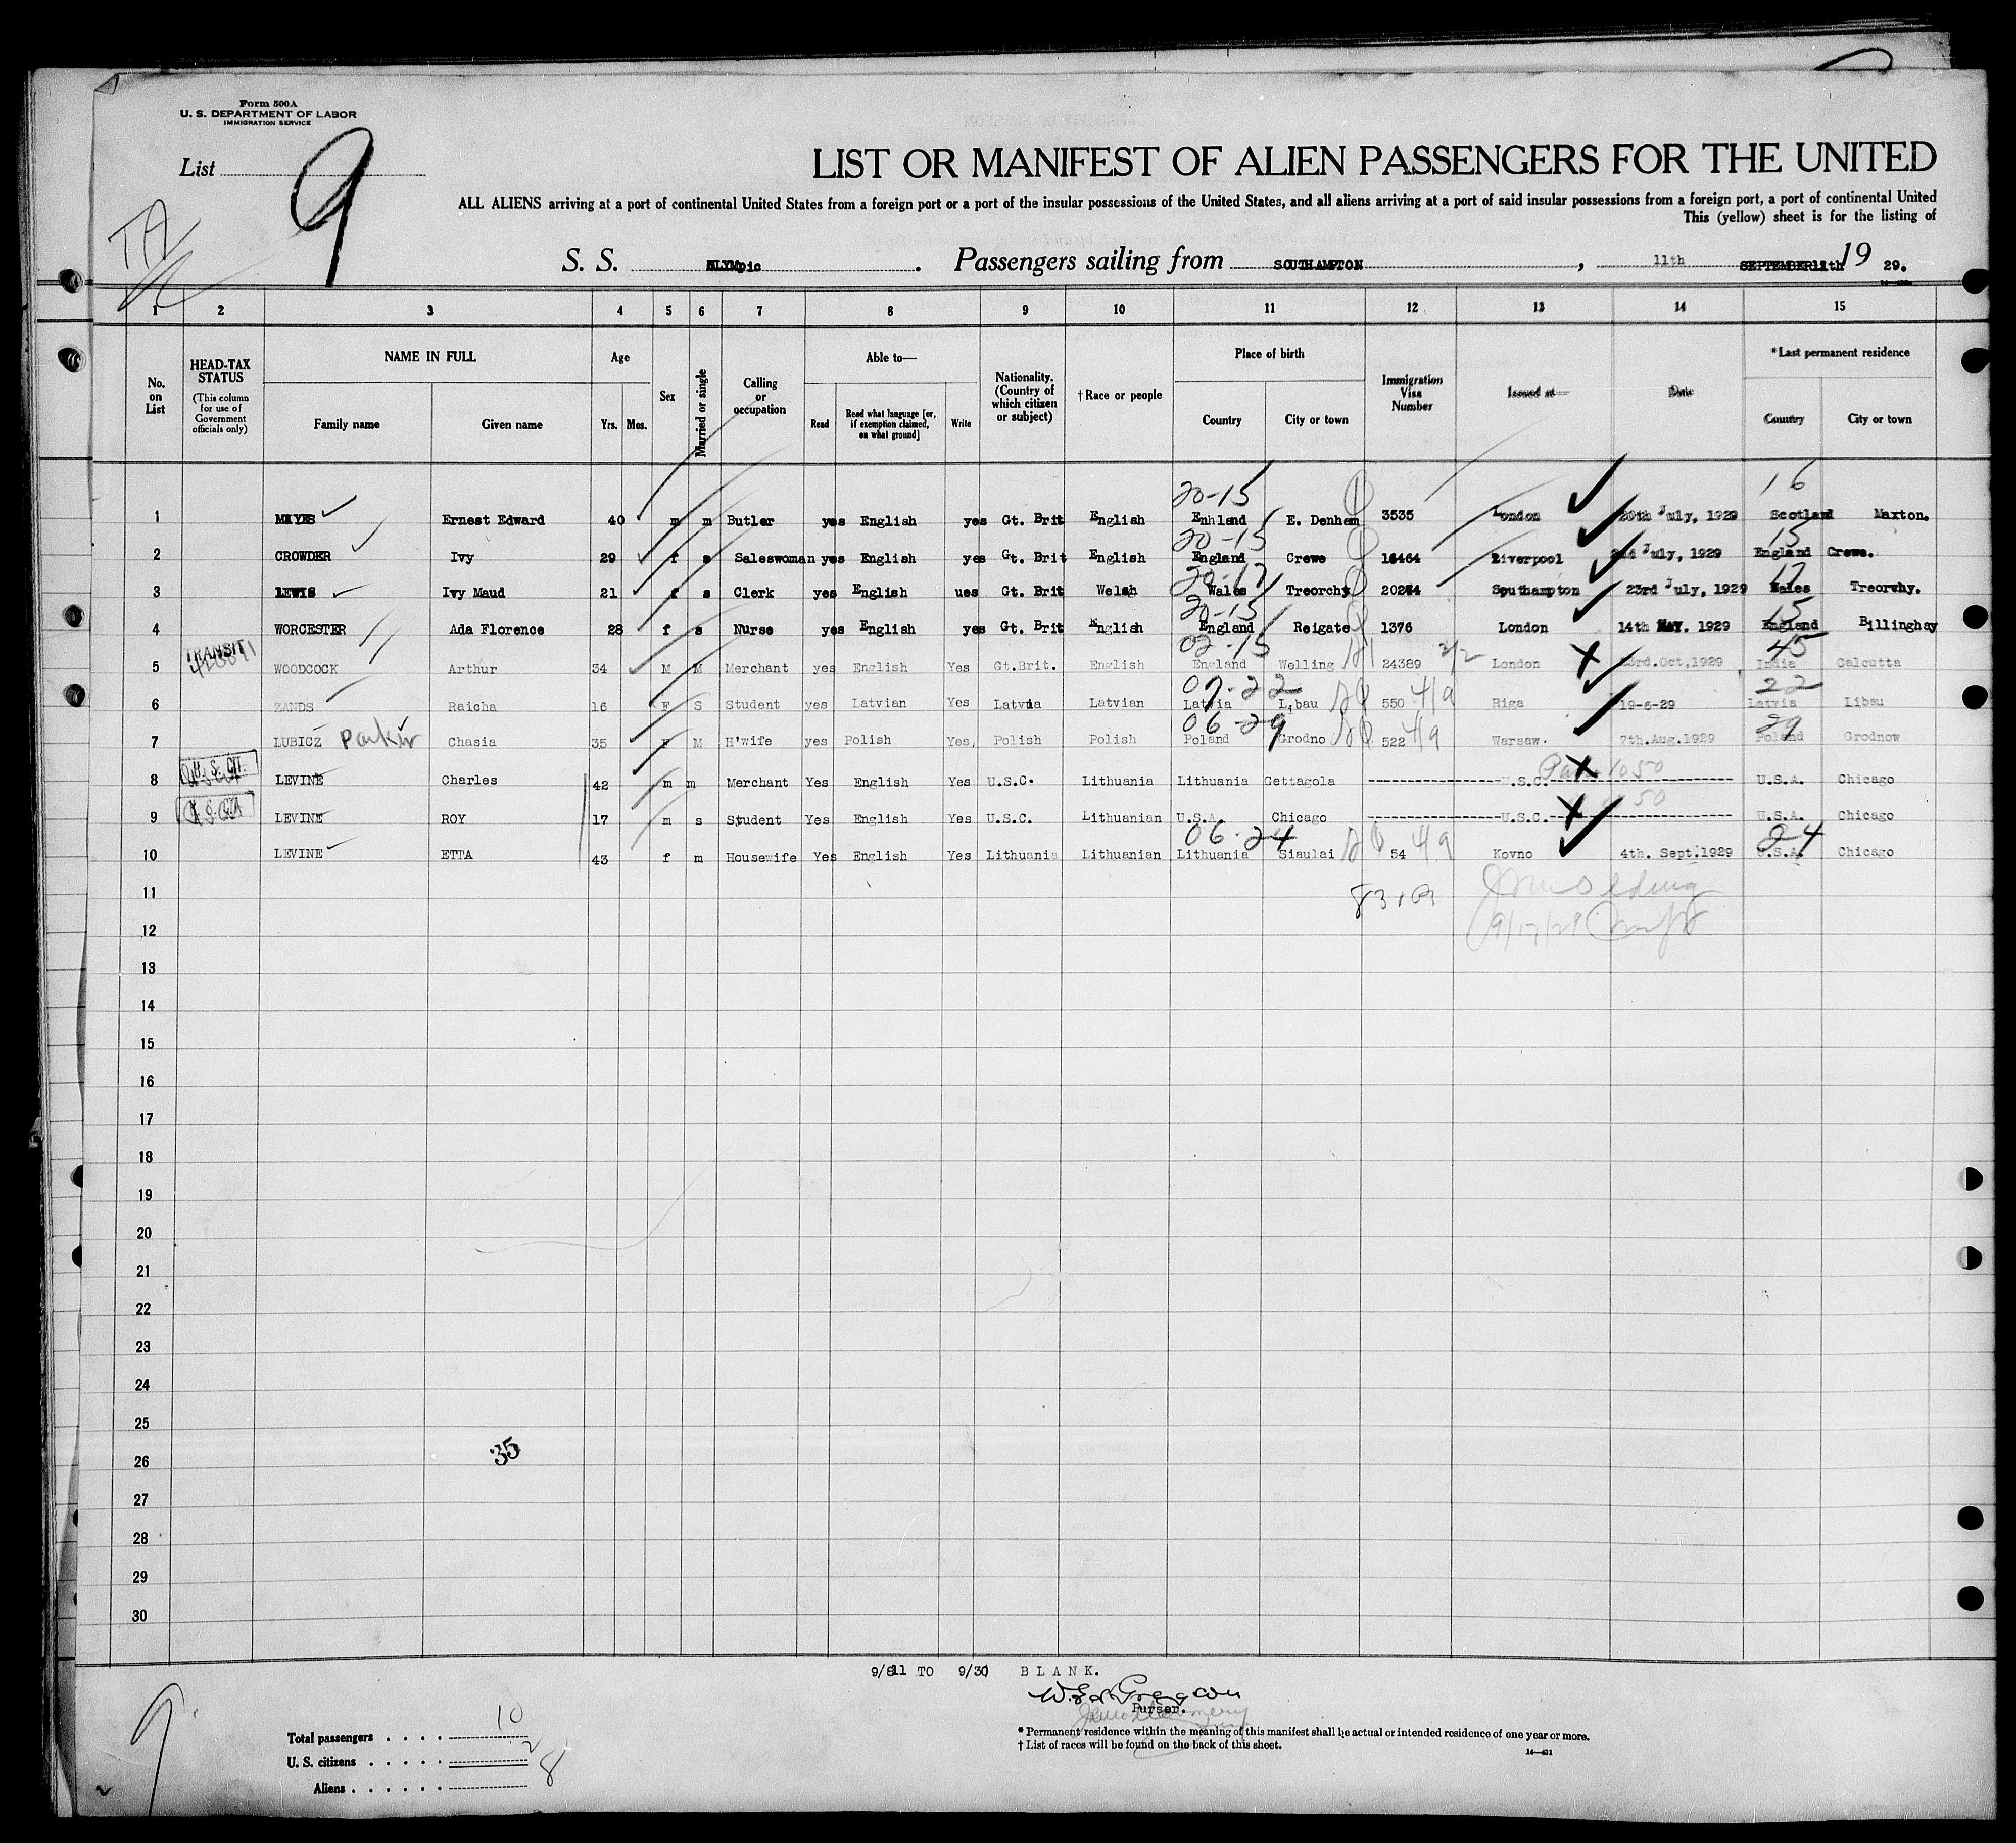 Form 500A
U. S. DEPARTMENT OF LABOR
IMMIGRATION SERVICE
List 9
LIST OR MANIFEST OF ALIEN PASSENGERS FOR THE UNITED
ALL ALIENS arriving at a port of continental United States from a foreign port or a port of the insular possessions of the United States, and all aliens arriving at a port of said insular possessions from a foreign port, a port of continental United
This (yellow) sheet is for the listing of
S. S. OLYMpic . Passengers sailing from SOUTHAMPTON , 11th SEPTEMBER 19 29.
1 2 3 4 5 6 7 8 9 10 11 12 13 14 15
No. on List
HEAD-TAX STATUS (This column for use of Government officials only)
NAME IN FULL Family name Given name
Age Yrs. Mos.
Sex
Married or single
Calling or occupation
Able to— Read Read what language [or, if exemption claimed, on what ground] Write
Nationality. (Country of which citizen or subject)
†Race or people
Place of birth Country City or town
Immigration Visa Number
Issued at—
Date
*Last permanent residence Country City or town
20-15 16
1 MAYES Ernest Edward 40 m m Butler yes English yes Gt. Brit English Enhland E. Denham 3535 London July, 1929 Scotland Maxton.
20-15 15
2 CROWDER Ivy 29 f s Saleswoman yes English yes Gt. Brit English England Crewe 16464 Liverpool 2nd July, 1929 England Crewe.
20-17 17
3 LEWIS Ivy Maud 21 f s Clerk yes English ues Gt. Brit Welsh Wales Treorchy 20274 Southampton 23rd July, 1929 Wales Treorchy.
20-15 15
4 WORCESTER Ada Florence 28 f s Nurse yes English yes Gt. Brit English England Reigate 1376 London 14th MAY. 1929 England Billinghay
TRANSIT 02-15 45
5 WOODCOCK Arthur 34 M M Merchant yes English Yes Gt.Brit. English England Welling 24389 3/2 London 23rd.Oct,1929 India Calcutta
07-22 22
6 ZANDS Raicha 16 F S Student yes Latvian Yes Latvia Latvian Latvia Libau 550 4/9 Riga 19-6-29 Latvia Libau
06-29 29
7 LUBICZ Parker Chasia 35 F M H'wife yes Polish Yes, Polish Polish Poland Grodno 522 4/9 Warsaw. 7th.Aug.1929 Poland Grodnow
U. S. CIT.
8 LEVINE Charles 42 m m Merchant Yes English Yes U.S.C. Lithuania Lithuania Gettagola U.S.C. U.S.A. Chicago
9 LEVINE ROY 17 m s Student Yes English Yes U.S.C. Lithuanian U.S.A. Chicago U.S.C. U.S.A. Chicago
06-24 24
10 LEVINE ETTA 43 f m Housewife Yes English Yes Lithuania Lithuanian Lithuania Siaulai 54 4/9 Kovno 4th. Sept.1929 U.S.A. Chicago
11
12 9/17/29
13
14
15
16
17
18
19
20
21
22
23
24
25
26 35
27
28
29
30
9/11 TO 9/30 BLANK.
Purser.
9
Total passengers 10
U. S. citizens 2
Aliens 8
* Permanent residence within the meaning of this manifest shall be actual or intended residence of one year or more.
† List of races will be found on the back of this sheet.
14—431